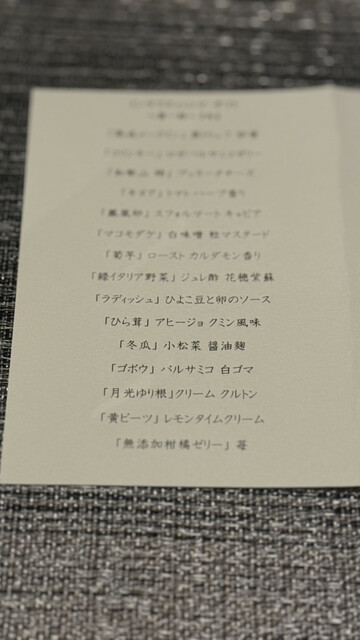 「キヌア」トマト ハーブ香り
「鳳凰卵」スフォルマート キャビア
「マコモダケ」白味噌 粒マスタード
「菊芋」ロースト カルダモン香り
「緑イタリア野菜」ジュレ酢 花穂紫蘇
「ラディッシュ」ひよこ豆と卵のソース
「ひら茸」アヒージョ クミン風味
「冬瓜」小松菜 醤油麹
「ゴボウ」バルサミコ 白ゴマ
「月光ゆり根」クリーム クルトン
「黄ビーツ」レモンタイムクリーム
「無添加柑橘ゼリー」苺